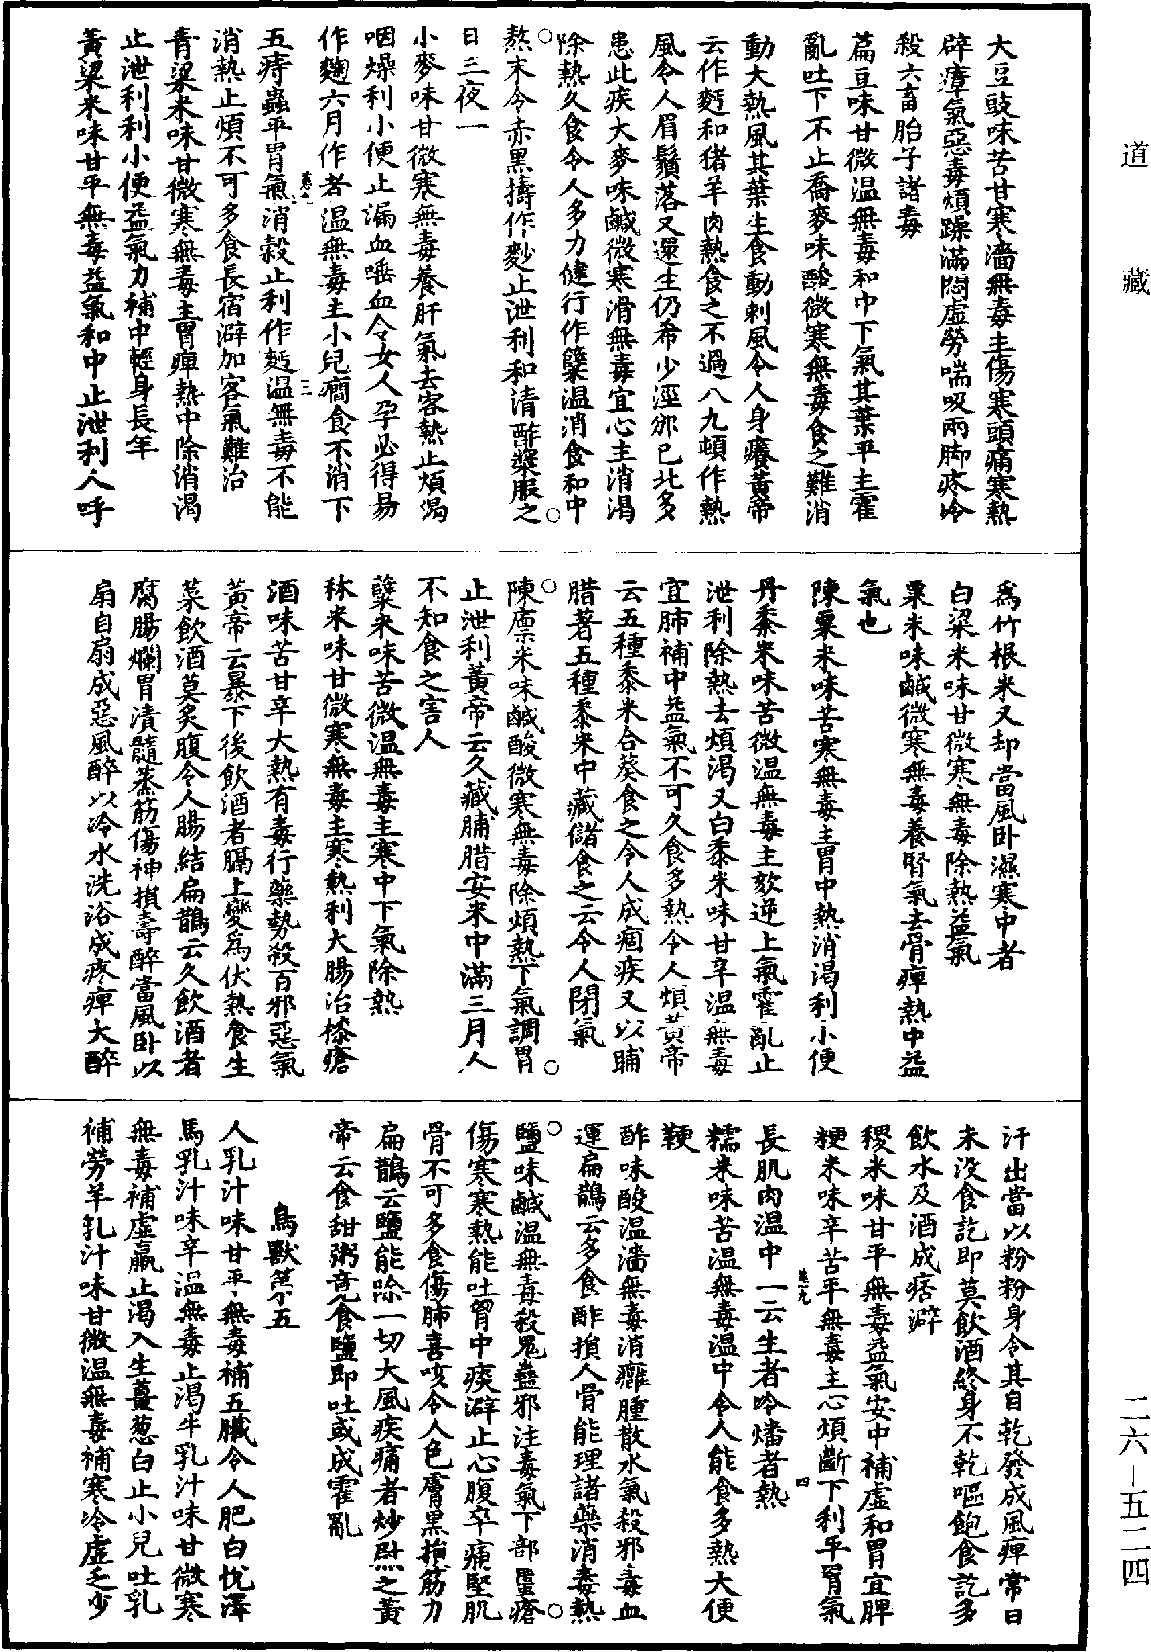 大豆豉味苦甘寒濇無毒主傷寒頭痛寒熱
辟瘴氣惡毒煩躁滿悶虛勞喘吸兩脚疼冷
殺六畜胎子諸毒
藊豆味甘微溫無毒和中下氣其葉平主霍
亂吐下不止喬麥味酸微寒無毒食之難消
動大熱風其葉生食動刺風令人身癢黃帝
云作麪和猪羊肉熱食之不過八九頓作熱
風令人眉鬚落又還生仍希少涇邠已北多
患此疾大麥味鹹微寒滑無毒宜心主消渴
除熱久食令人多力健行作糵溫消食和中
熬末令赤黑擣作麨止泄利和清酢漿服之
日三夜一
小麥味甘微寒無毒養肝氣去客熱止煩渴
咽燥利小便止漏血唾血令女人孕必得易
作麴六月作者溫無毒主小兒癇食不消下
五痔蟲平胃氣消穀止利作麪溫無毒不能
消熱止煩不可多食長宿澼加客氣難治
青粱米味甘微寒無毒主胃痺熱中除消渴
止泄利利小便益氣力補中輕身長年
黃粱米味甘平無毒益氣和中止泄利人呼
爲竹根米又却當風卧濕寒中者
白粱米味甘微寒無毒除熱益氣
粟米味鹹微寒無毒養腎氣去骨痺熱中益
氣也
陳粟米味苦寒無毒主胃中熱消渴利小便
丹黍米味苦微溫無毒主欬逆上氣霍亂止
泄利除熱去煩渴又白黍米味甘辛溫無毒
宜肺補中益氣不可久食多熱令人煩黃帝
云五種黍米合葵食之令人成痼疾又以脯
腊著五種黍米中藏儲食之云令人閉氣
陳廩米味鹹酸微寒無毒除煩熱下氣調胃
止泄利黃帝云久藏脯腊安米中滿三月人
不知食之害人
糵米味苦微溫無毒主寒中下氣除熱
秫米味甘微寒無毒主寒熱利大腸治𣾰瘡
酒味苦甘辛大熱有毒行藥勢殺百邪惡氣
黃帝云暴下後飲酒者膈上變爲伏熱食生
菜飲酒莫炙腹令人腸結扁鵲云久飲酒者
腐腸爛胃漬髓蒸筋傷神損壽醉當風卧以
扇自扇成惡風醉以冷水洗浴成疼痺大醉
汗出當以粉粉身令其自乾發成風痺常日
未没食訖即莫飲酒終身不乾嘔飽食訖多
飲水及酒成痞澼
稷米味甘平無毒益氣安中補虛和胃宜脾
粳米味辛苦平無毒主心煩斷下利平胃氣
長肌肉溫中一云生者冷燔者熱
糯米味苦溫無毒溫中令人能食多熱大便
鞕
酢味酸溫濇無毒消癰腫散水氣殺邪毒血
運扁鵲云多食酢損人骨能理諸藥消毒熱
鹽味鹹溫無毒殺鬼蠱邪注毒氣下部䘌瘡
傷寒寒熱能吐胷中痰澼止心腹卒痛堅肌
骨不可多食傷肺喜咳令人色膚黑損筋力
扁鵲云鹽能除一切大風疾痛者炒熨之黃
帝云食甜粥竟食鹽即吐或成霍亂
鳥獸第五
人乳汁味甘平無毒補五臟令人肥白悅澤
馬乳汁味辛溫無毒止渴牛乳汁味甘微寒
無毒補虛羸止渴入生薑葱白止小兒吐乳
補勞羊乳汁味甘微溫無毒補寒冷虛乏少
道藏
二六—五二四